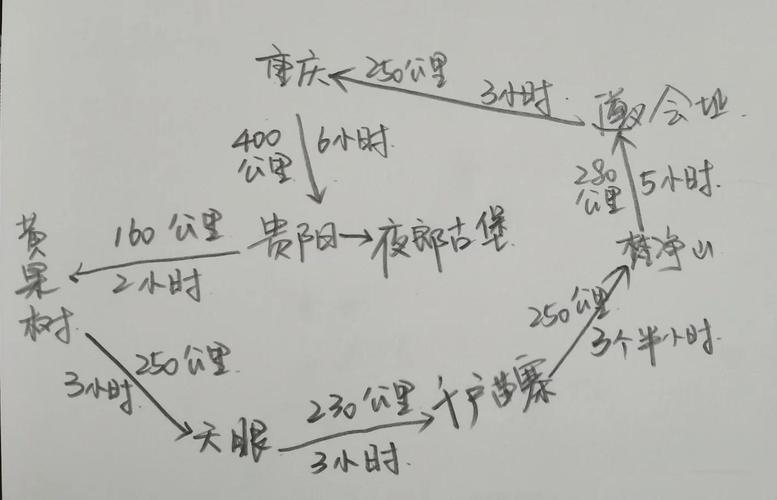 重庆
250公里
3小时.
遵义会址.
400
公里
6小时.
280
公里
5小时.
黄
果
树
160公里
2小时
贵阳
夜郎古堡.
梵净山
250公里
3个半小时.
250公里.
3小时.
天眼
230公里
3小时.
千户苗寨